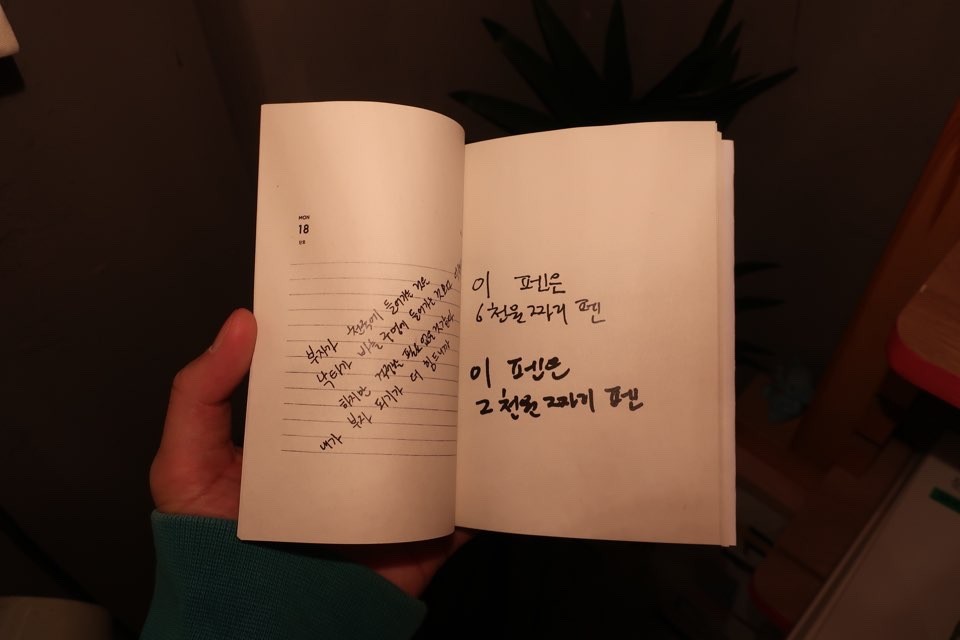 MON
18
부자가 천국에 들어가는 것은
낙타가 바늘 구멍에 들어가는 것보다
하지만 걱정은 필요 없을 것 같다
내가 부자 되기가 더 힘드니까
이 펜은
6천원 짜리 펜
이 펜은
2천원 짜리 펜